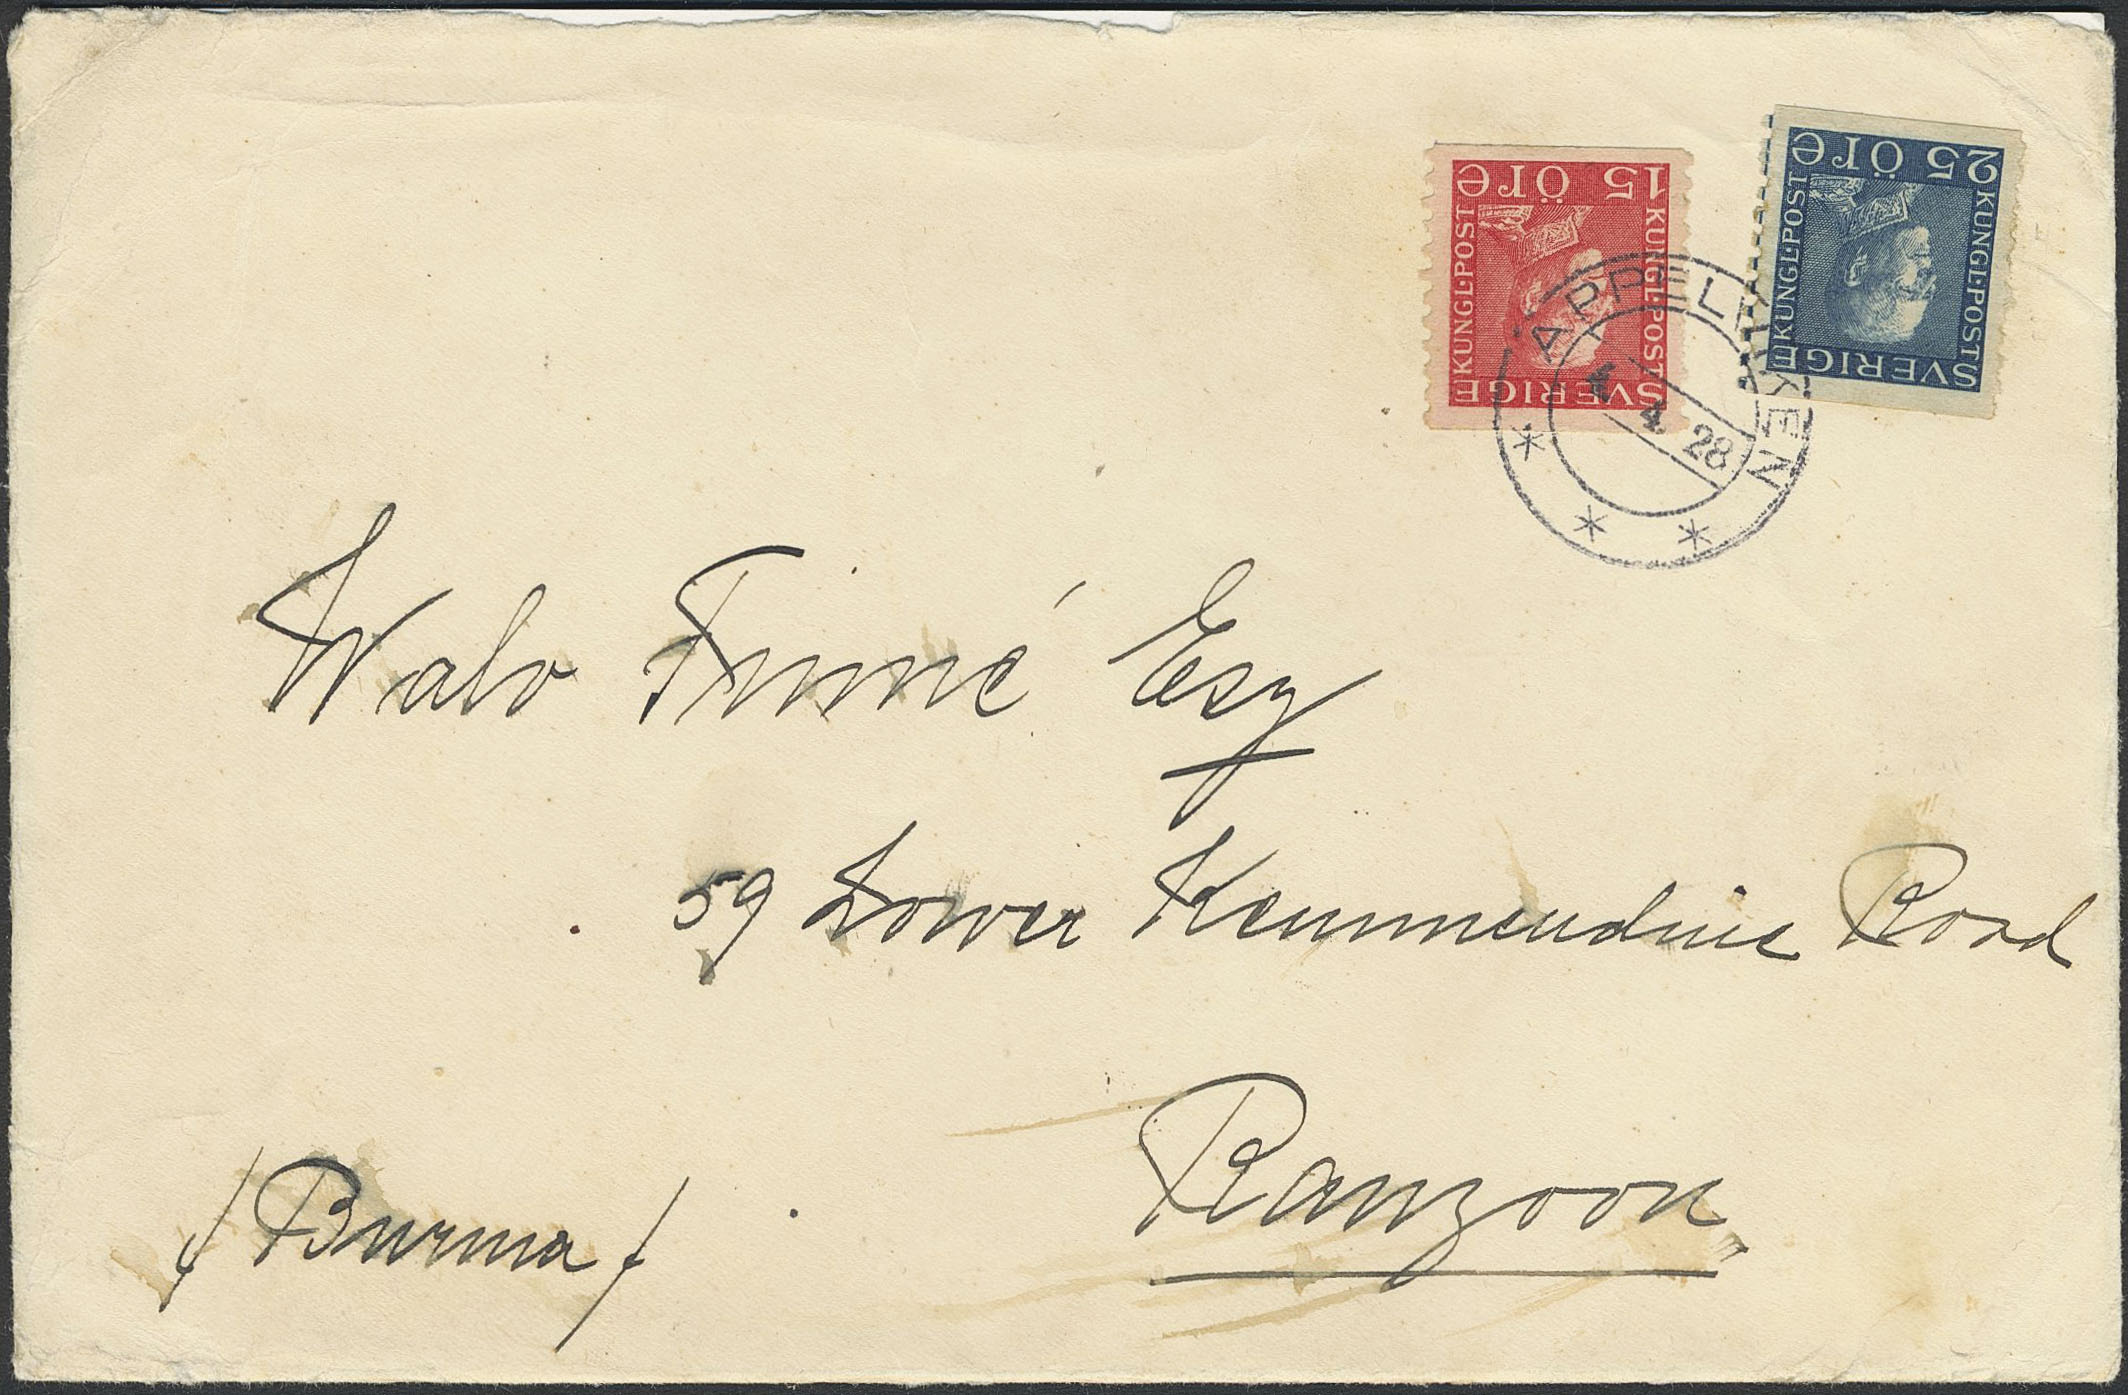 15 ÖRE
KUNGL·POST
KUNGL·POST
SVERIGE
25 ÖRE
KUNGL·POST
KUNGL·POST
SVERIGE
ÄPPELVIKEN
4 28
Esq
59 Lower Kemmendine Road
Rangoon
/Burma/